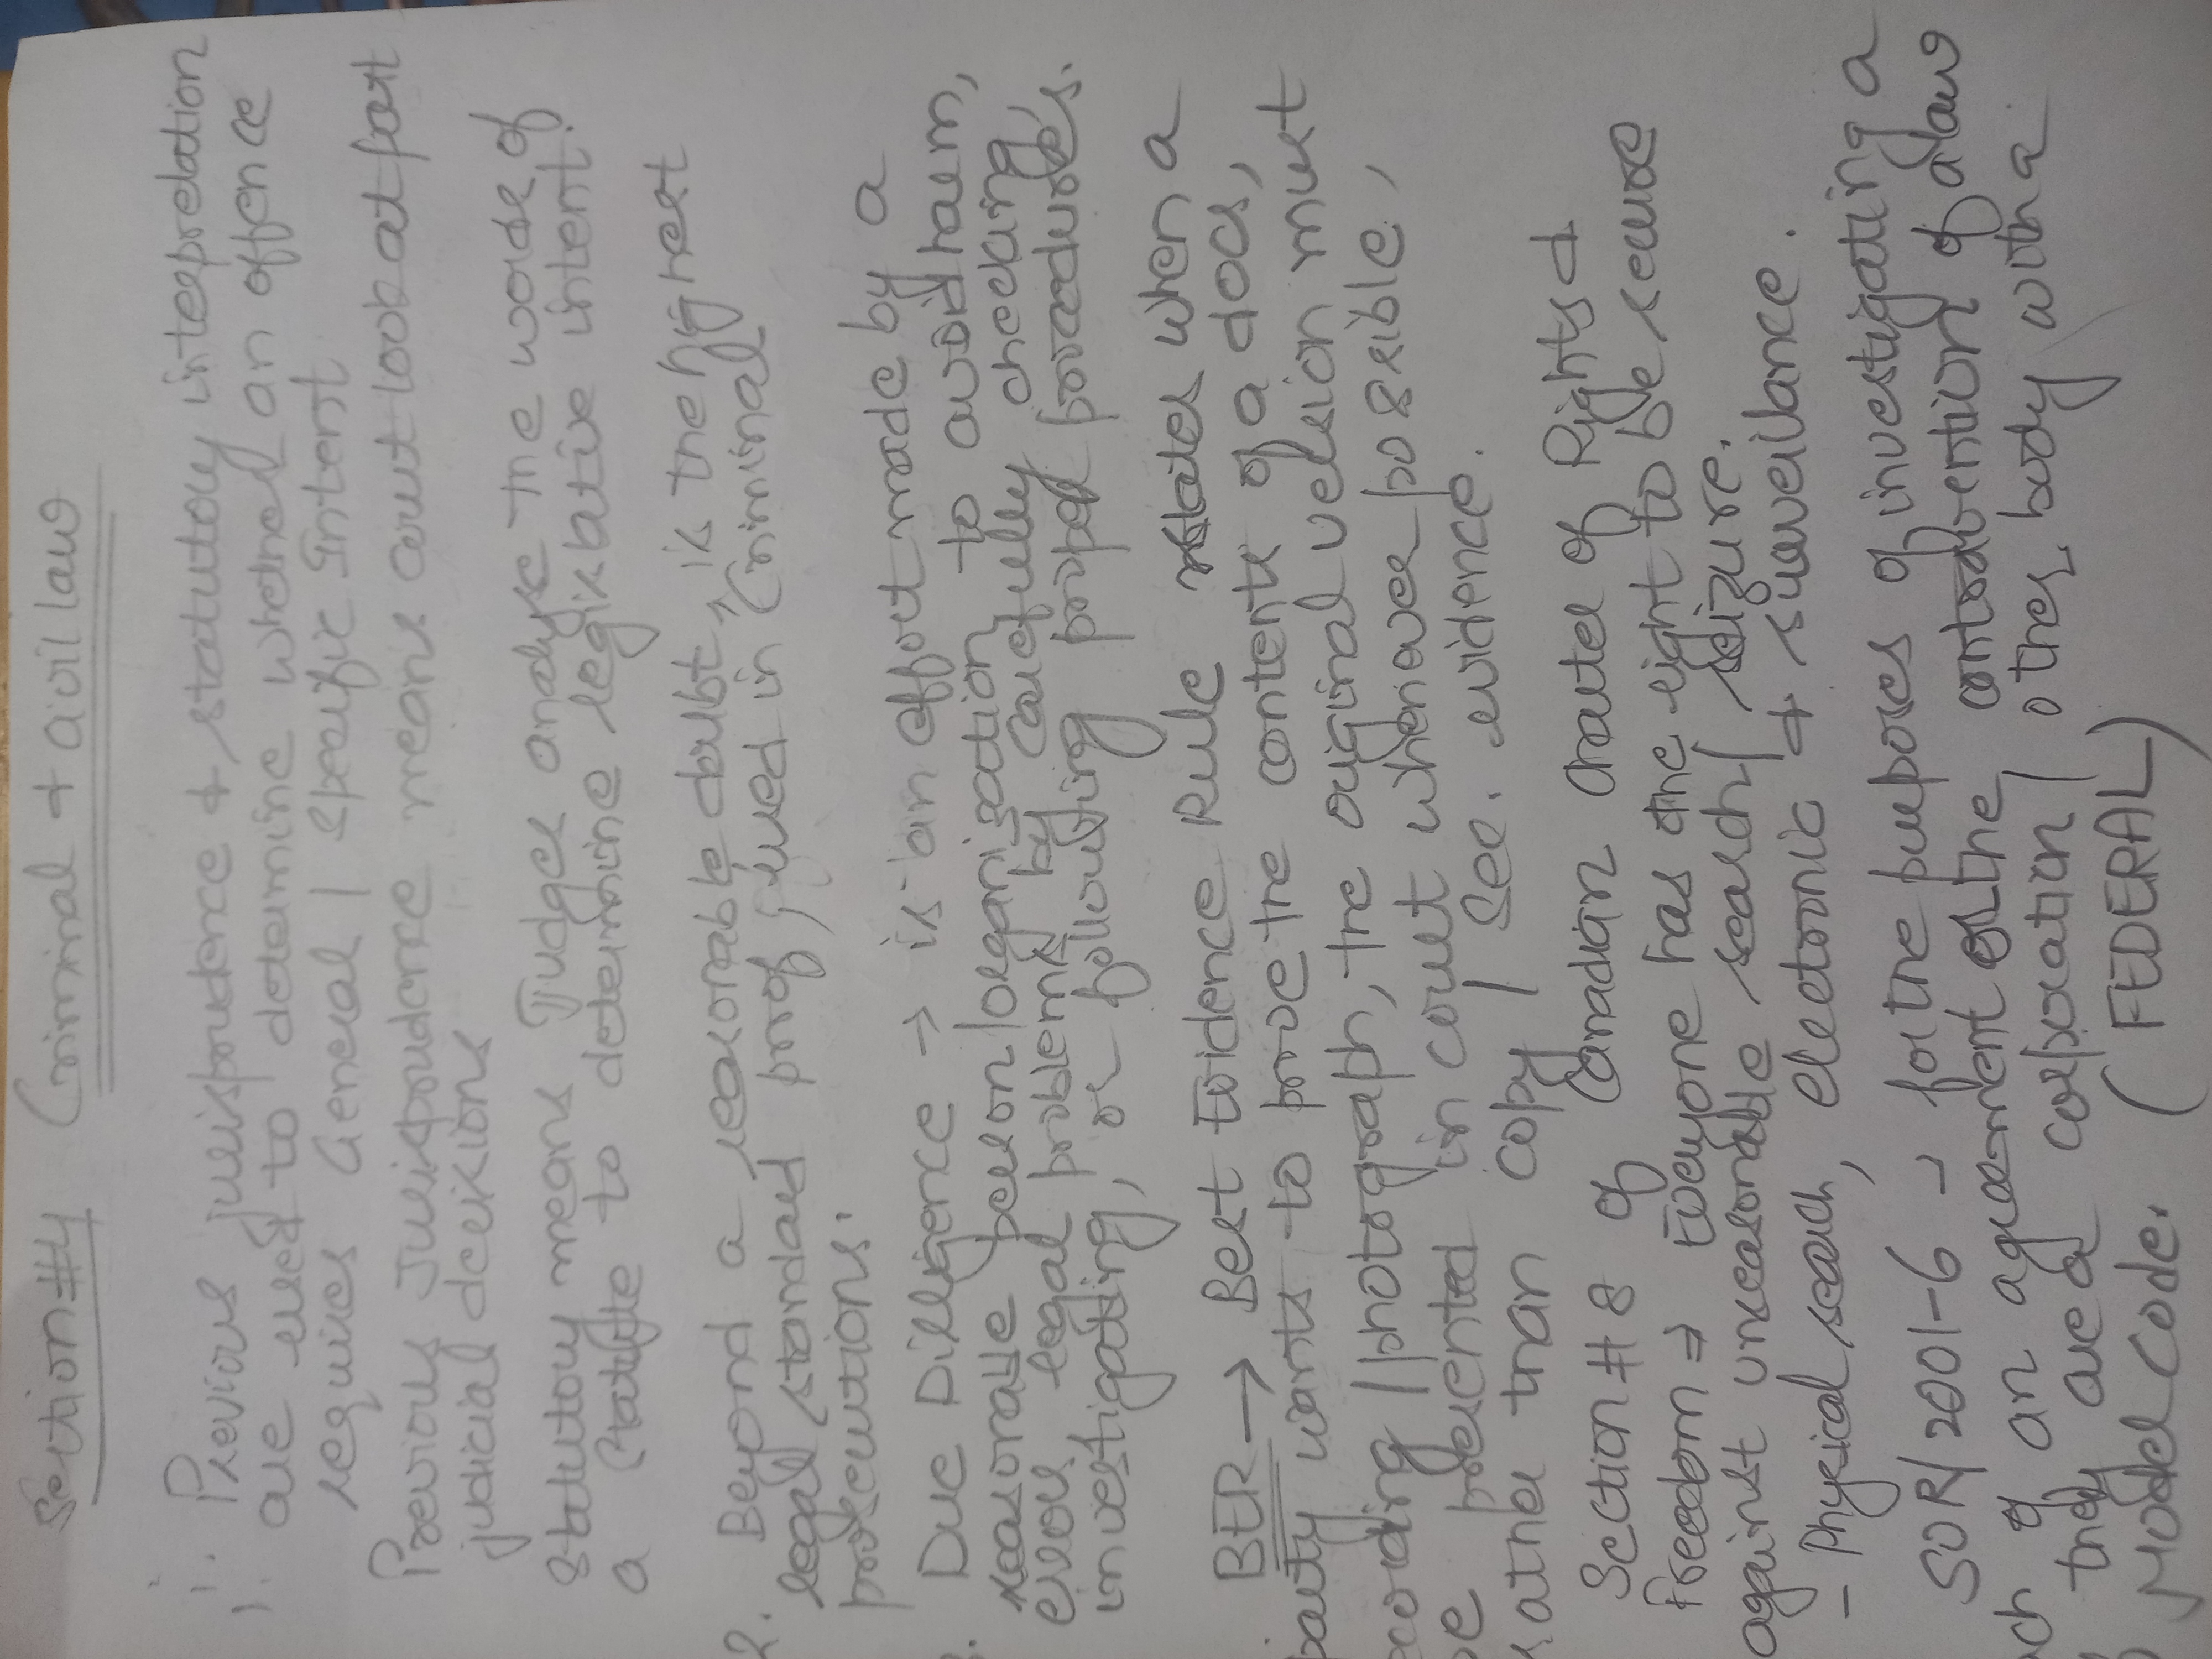 Section #4 Criminal + Civil law
1. Previous jurisprudence + statutory interpretation
are used to determine whether an offence
requires General / Specific Intent
Previous Jurisprudence means court look at past
judicial decisions
statutory means Judges analyse the words of
a statute to determine legislative intent.
2. Beyond a reasonable doubt, is the highest
legal standard proof, used in Criminal
prosecutions.
Due Diligence → is an effort made by a
reasonable person/organization to avoid harm,
error legal problems by carefully checking,
investigating, or following proper procedures.
BER → Best Evidence Rule states when a
party wants to prove the contents of a docs,
recording / photograph, the original version must
be presented in court whenever possible,
rather than copy / Sec. evidence.
Section # 8 of Canadian Charter of Rights &
Freedom ⇒ Everyone has the right to be secure
against unreasonable search / seizure.
- Physical search, electronic + surveillance.
SOR/2001-6 → for the purposes of investigating a
of an agreement or the contravention of a law
they are a corporation / other body with a
Model Code. (FEDERAL)